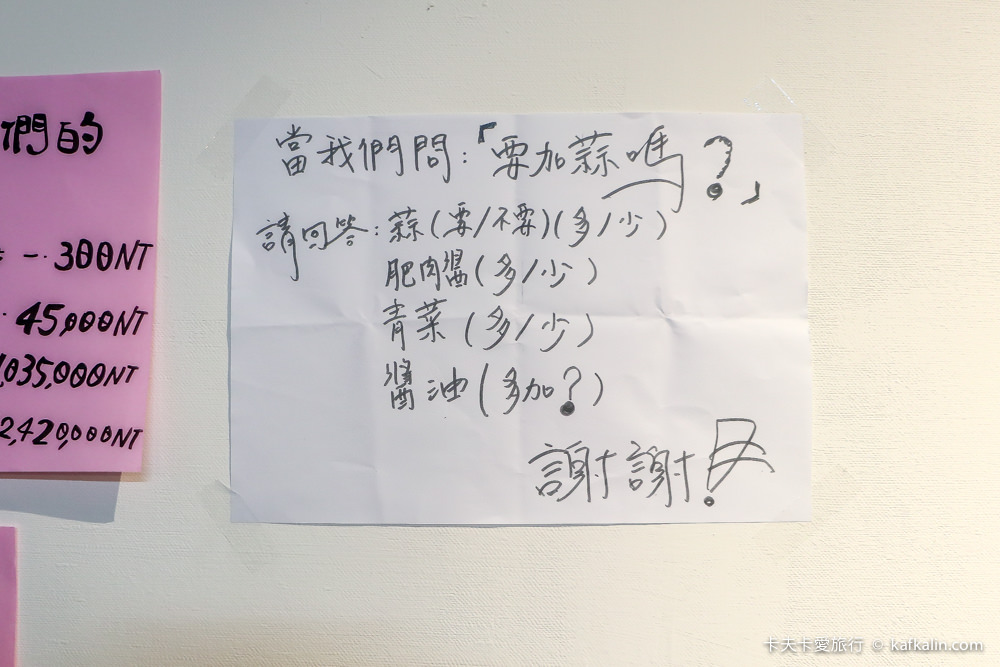 們的
300NT
45,000NT
,035,000NT
2,420,000NT
當我們問:「要加蒜嗎?」
請回答:蒜(要/不要)(多/少)
肥肉醬(多/少)
青菜(多/少)
醬油(多加?)
謝謝!
卡夫卡愛旅行 © kafkalin.com